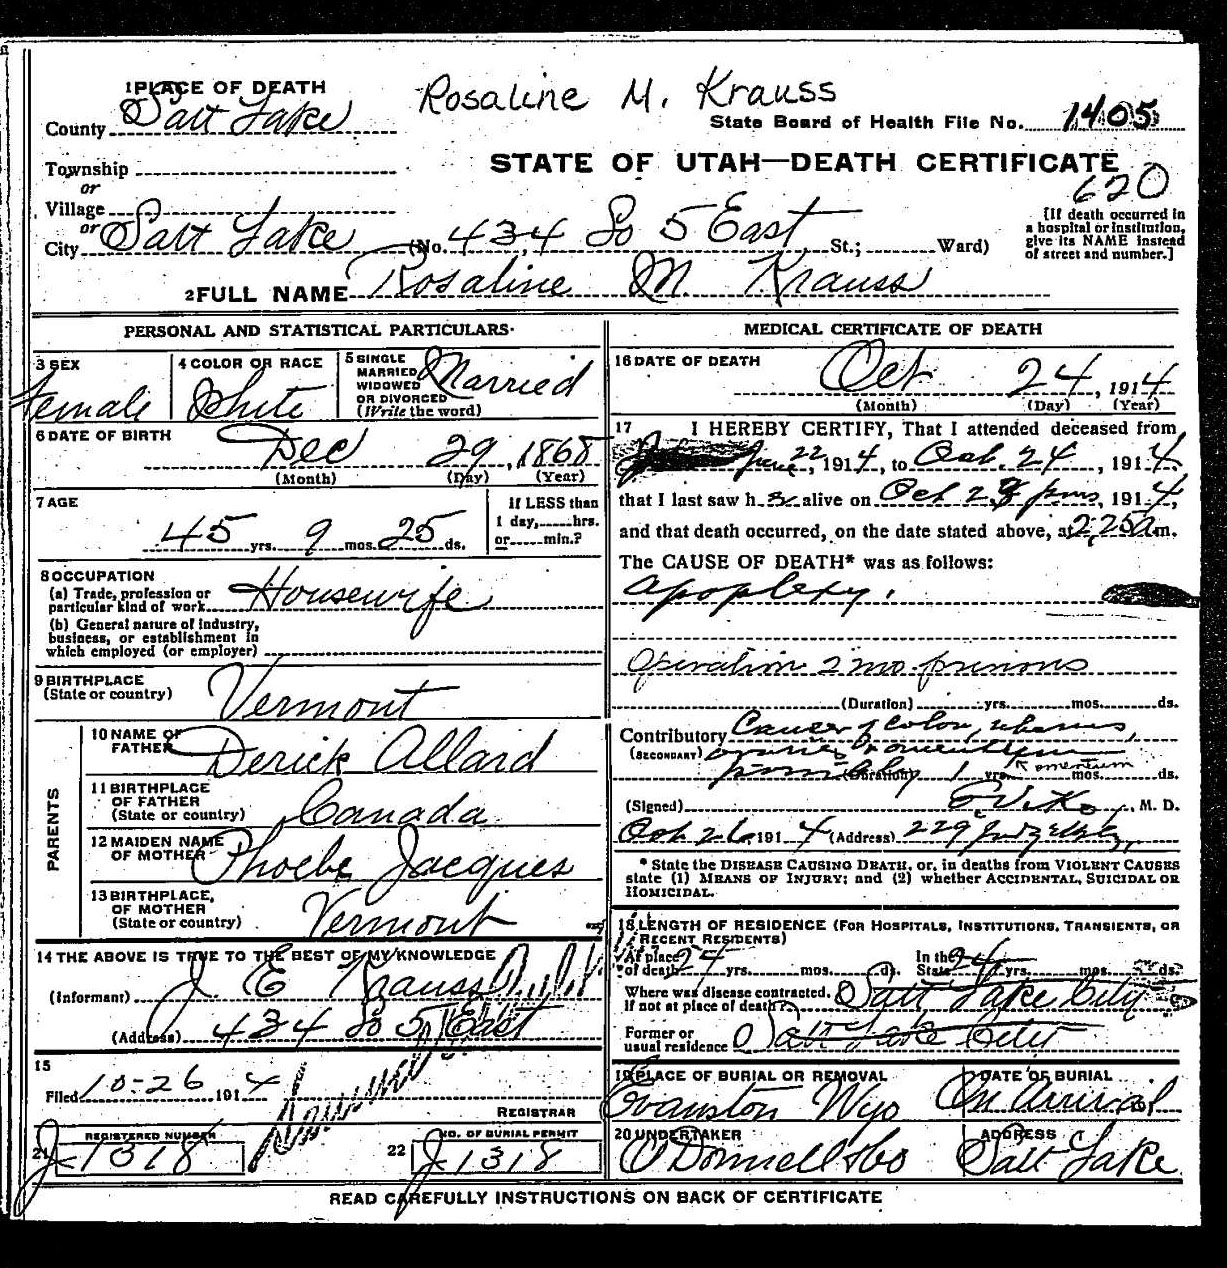 1 PLACE OF DEATH
Rosaline M. Krauss
County Salt Lake
State Board of Health File No. 1405
Township
STATE OF UTAH—DEATH CERTIFICATE
or
620
Village
or
City Salt Lake (No. 434 So 5 East St.; Ward)
[If death occurred in
a hospital or institution,
give its NAME instead
of street and number.]
2 FULL NAME Rosaline M. Krauss
PERSONAL AND STATISTICAL PARTICULARS
3 SEX
Female
4 COLOR OR RACE
White
5 SINGLE
MARRIED
WIDOWED
OR DIVORCED
(Write the word)
Married
6 DATE OF BIRTH
Dec 29, 1868
(Month) (Day) (Year)
7 AGE
45 yrs. 9 mos. 25 ds.
If LESS than
1 day,......hrs.
or......min.?
8 OCCUPATION
(a) Trade, profession or
particular kind of work Housewife
(b) General nature of industry,
business, or establishment in
which employed (or employer)
9 BIRTHPLACE
(State or country) Vermont
PARENTS
10 NAME OF
FATHER Derick Allard
11 BIRTHPLACE
OF FATHER
(State or country) Canada
12 MAIDEN NAME
OF MOTHER Phoebe Jacques
13 BIRTHPLACE
OF MOTHER
(State or country) Vermont
14 THE ABOVE IS TRUE TO THE BEST OF MY KNOWLEDGE
(Informant) J. E Krauss
(Address) 434 So 5 East
15
Filed 10-26 1914
REGISTRAR
REGISTERED NUMBER
21 J-1318
NO. OF BURIAL PERMIT
22 J-1318
MEDICAL CERTIFICATE OF DEATH
16 DATE OF DEATH
Oct 24, 1914
(Month) (Day) (Year)
17 I HEREBY CERTIFY, That I attended deceased from
June 22, 1914, to Oct. 24, 1914
that I last saw h alive on Oct 2 pm, 1914,
and that death occurred, on the date stated above, at 2:25 a m.
The CAUSE OF DEATH* was as follows:
Apoplexy.
Operation 2 mo. previous
(Duration) yrs. mos. ds.
Contributory Cancer of colon, uterus,
(SECONDARY) ovaries & omentum
possibly (Duration) 1 yrs. omentum mos. ds.
(Signed) M. D.
Oct 26 1914 (Address) 229 Judge Bldg
* State the DISEASE CAUSING DEATH, or, in deaths from VIOLENT CAUSES
state (1) MEANS OF INJURY; and (2) whether ACCIDENTAL, SUICIDAL OR
HOMICIDAL.
18 LENGTH OF RESIDENCE (FOR HOSPITALS, INSTITUTIONS, TRANSIENTS, OR
RECENT RESIDENTS)
At place
of death 24 yrs. mos. ds.
In the
State 24 yrs. mos. ds.
Where was disease contracted,
if not at place of death? Salt Lake City
Former or
usual residence Salt Lake City
19 PLACE OF BURIAL OR REMOVAL
Evanston Wyo
DATE OF BURIAL
On Arrival
20 UNDERTAKER
O'Donnell & Co
ADDRESS
Salt Lake
READ CAREFULLY INSTRUCTIONS ON BACK OF CERTIFICATE